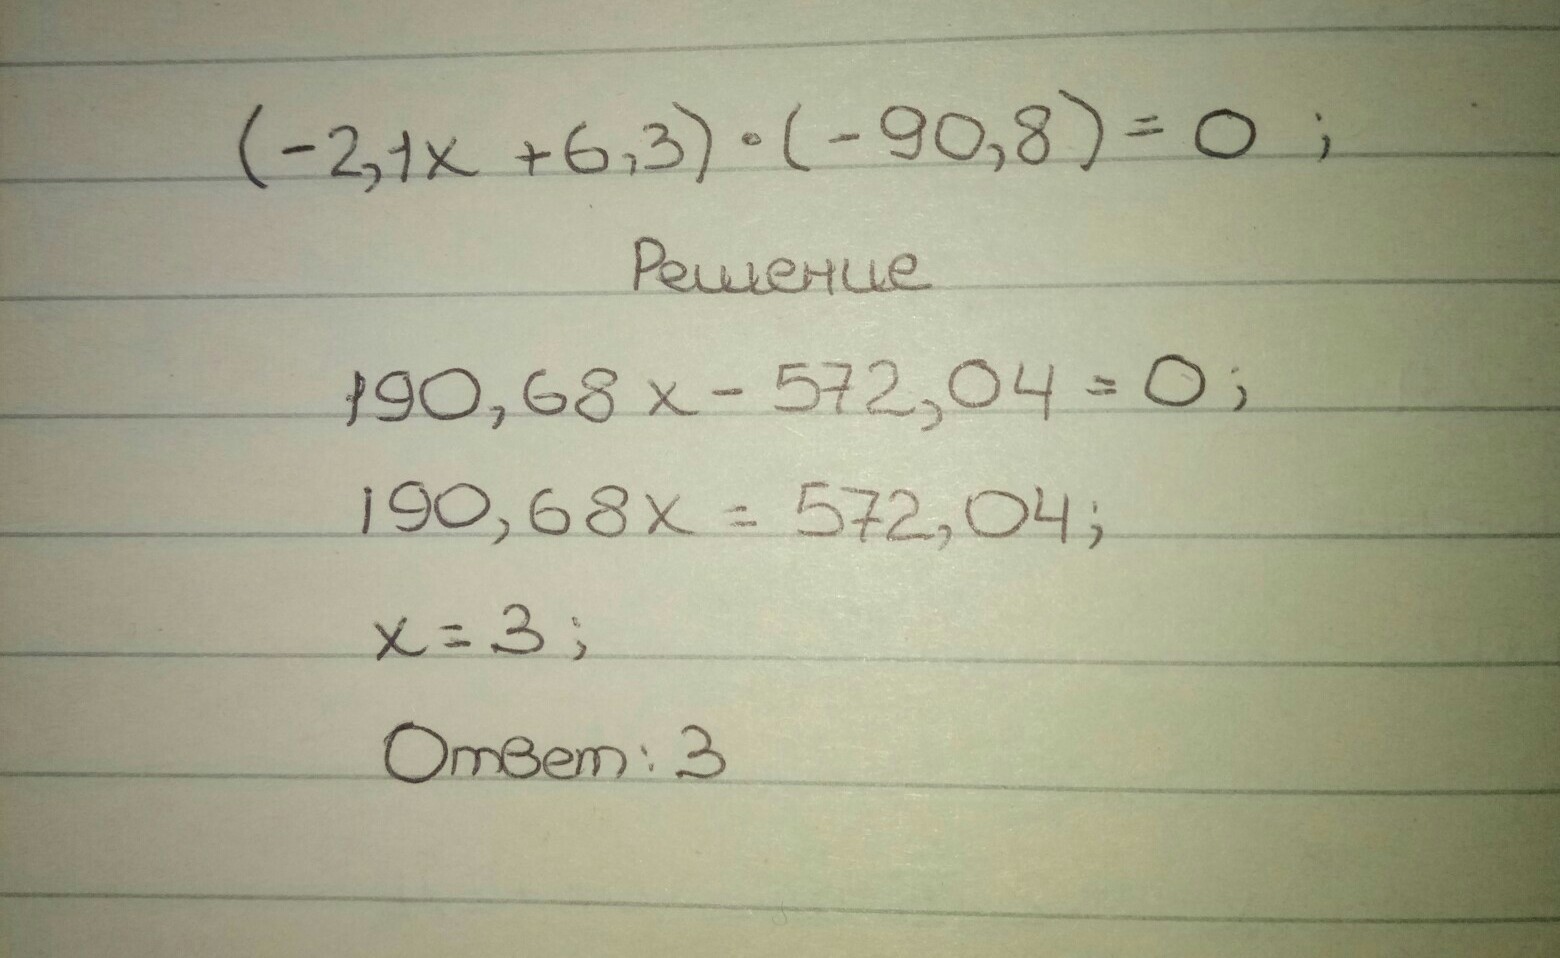 (-2,1x +6,3)·(-90,8)=0 ;
Решение
190,68x - 572,04 = 0;
190,68x = 572,04;
x = 3 ;
Ответ: 3